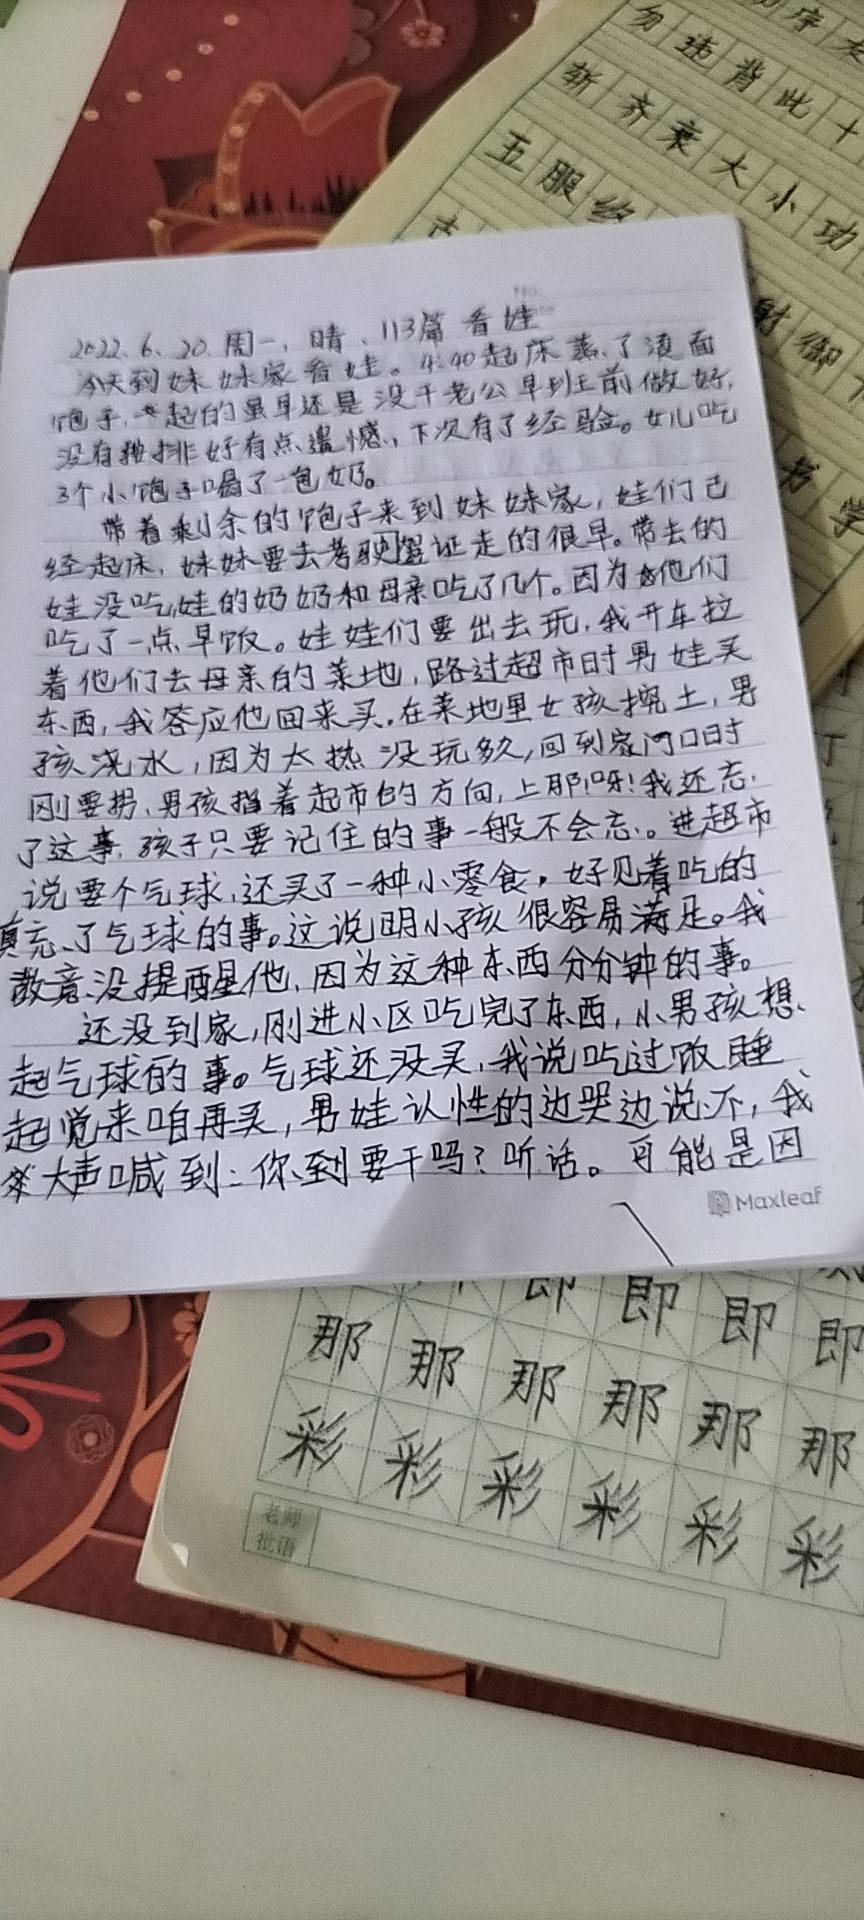 勿违背此十
斩齐衰大小功
五服终
射御
书学
No.
2022.6.20.周一,晴、113篇 看娃
今天到妹妹家看娃。4:40起床蒸了烫面
包子,起的虽早还是没干老公早到上前做好,
没有按排好有点遗憾,下次有了经验。女儿吃
3个小包子喝了一包奶。
带着剩余的包子来到妹妹家,娃们已
经起床,妹妹要去考驾证走的很早。带去的
娃没吃,娃的奶奶和母亲吃了几个。因为他们
吃了一点早饭。娃娃们要出去玩,我开车拉
着他们去母亲的菜地,路过超市时男娃买
东西,我答应他回来买。在菜地里女孩挖土,男
孩浇水,因为太热没玩多久,回到家门口时
刚要拐、男孩指着超市的方向,上那呀!我还忘
了这事,孩子只要记住的事一般不会忘。进超市
说要个气球,还买了一种小零食,好见着吃的
填充了气球的事。这说明小孩很容易满足。我
故意没提醒他,因为这种东西分分钟的事。
还没到家,刚进小区吃完了东西,小男孩想
起气球的事。气球还没买,我说吃过饭睡
起觉来咱再买,男娃认性的边哭边说不,我
大声喊到:你到要干吗?听话。可能是因
Maxleaf
即 即 即 即
那 那 那 那 那 那
彩 彩 彩 彩 彩 彩
老师
批语